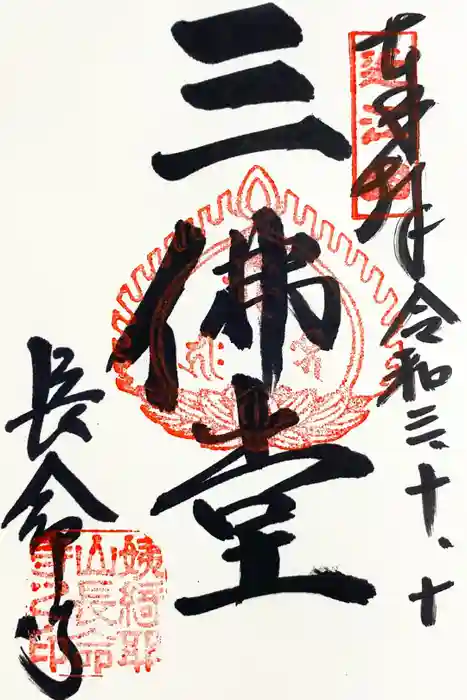 奉拝
令和三、十、十
三佛堂
長命寺
近江
姨綺耶
山長命
寺之印